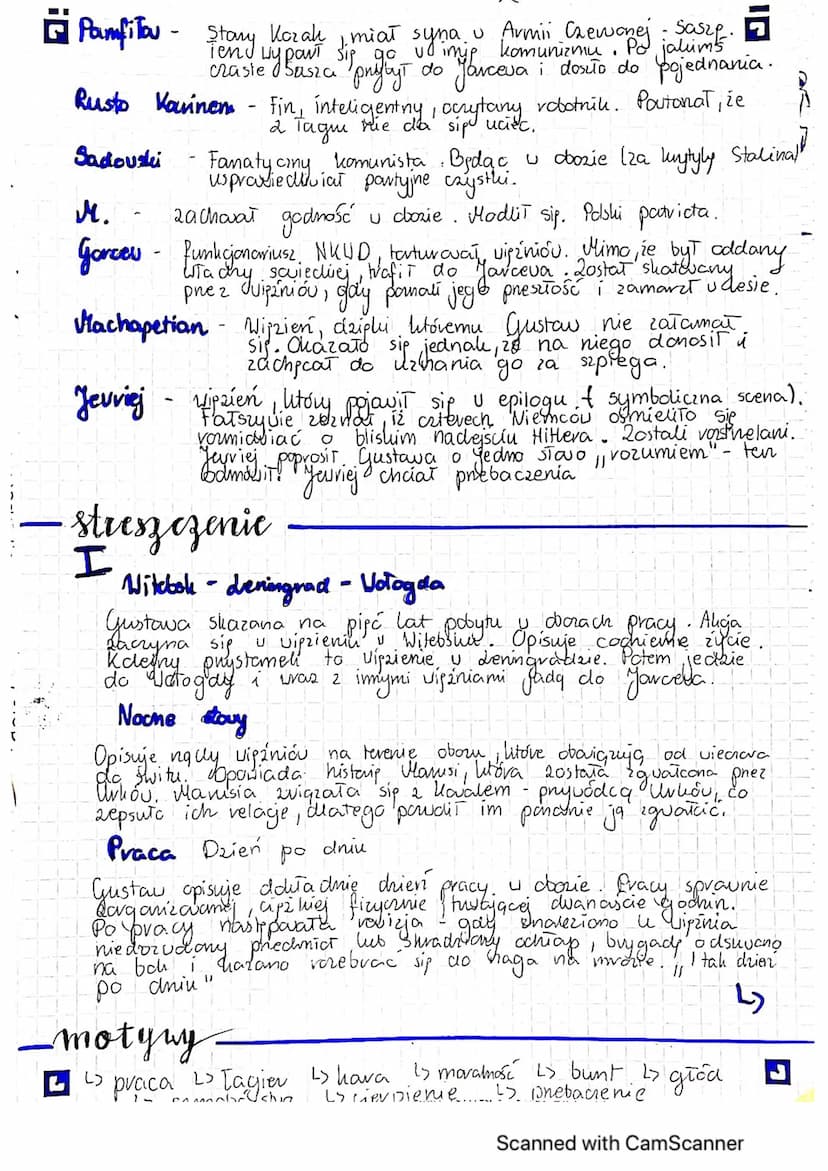 Pamfiłow - Stary Kozak, miał syna w Armii Czerwonej - Saszę.
ten wyparł się go w imię komunizmu. Po jakimś
czasie Sasza przybył do Jarcewa i doszło do pojednania.
Rusto Karinen - Fin, inteligentny, oczytany robotnik. Powtarzał, że
z łagru nie da się uciec.
Sadowski - Fanatyczny komunista. Będąc w obozie (za krytykę Stalina)
usprawiedliwiał partyjne czystki.
M. - zachował godność w obozie. Modlił się. Polski patriota.
Gorcew - funkcjonariusz NKWD, torturował więźniów. Mimo, że był oddany
władzy sowieckiej, trafił do Jarcewa. Został skatowany
przez więźniów, gdy poznali jego przeszłość i zamarzł w lesie.
Machapetian - Więzień, dzięki któremu Gustaw nie załamał
się. Okazało się jednak, że na niego donosił i
zachęcał do uznania go za szpiega.
Jewriej - więzień, który pojawił się w epilogu (symboliczna scena).
Fałszywie zeznał, iż czterech Niemców ośmieliło się
rozmawiać o bliskim nadejściu Hitlera. Zostali rozstrzelani.
Jewriej poprosił Gustawa o jedno słowo „rozumiem" - ten
odmówił. Jewriej chciał przebaczenia
streszczenie
I
Witebsk - Leningrad - Wołogda
Gustawa skazana na pięć lat pobytu w obozach pracy. Akcja
zaczyna się w więzieniu w Witebsku. Opisuje codzienne życie.
Kolejny przystanek to więzienie w Leningradzie. Potem jedzie
do Wołogdy i wraz z innymi więźniami jadą do Jarcewa.
Nocne łowy
Opisuje rządy więźniów na terenie obozu, które obowiązują od wieczora
do świtu. Opowiada historię Marusi, która została zgwałcona przez
Urków. Marusia związała się z Kowalem - przywódcą Urków, co
zepsuło ich relacje, dlatego pozwolił im ponownie ją zgwałcić.
Praca Dzień po dniu
Gustaw opisuje dokładnie dzień pracy w obozie. Pracy sprawnie
zorganizowanej, ciężkiej fizycznie trwającej dwanaście godzin.
Po pracy następowała rewizja - gdy znaleziono u więźnia
niedozwolony przedmiot lub skradziony ochłap, brygadę odsuwano
na bok i kazano rozebrać się do naga na mrozie. „I tak dzień
po dniu"
motywy
↳ praca ↳ łagier ↳ kara ↳ moralność ↳ bunt ↳ głód
↳ cierpienie ↳ przebaczenie
Scanned with CamScanner